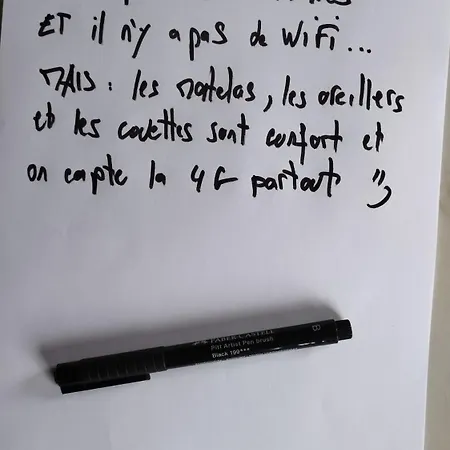 ET il n'y a pas de WiFi...
MAIS : les matelas, les oreillers
et les couettes sont confort et
on capte la 4G partout ")
FABER-CASTELL
Pitt Artist Pen brush
Black 199***
B